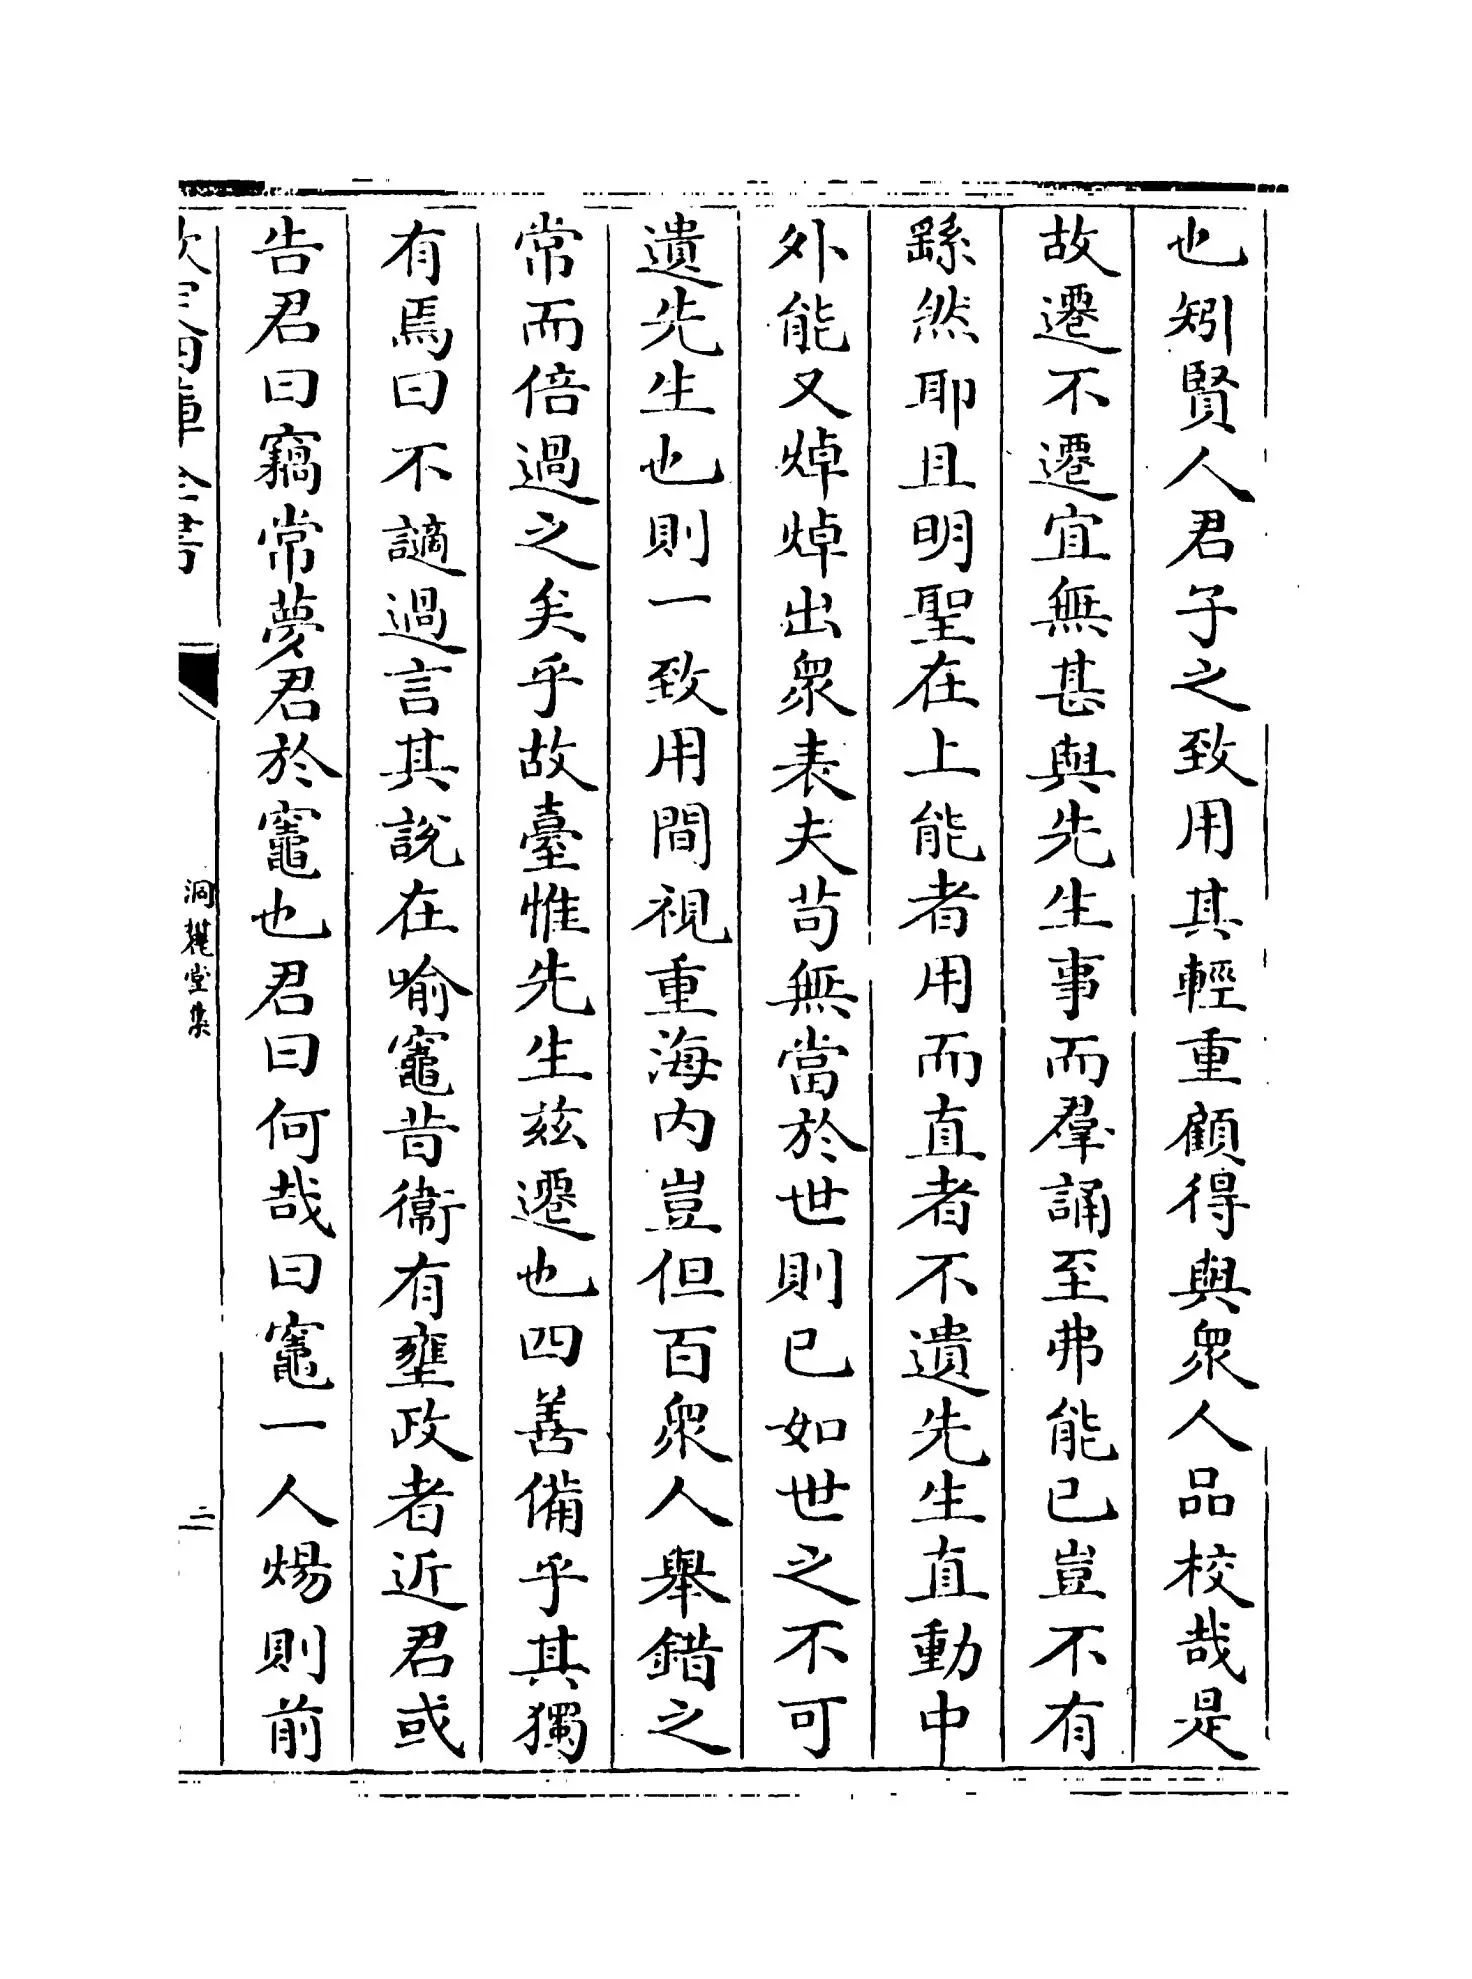 也矧賢人君子之致用其輕重顧得與衆人品校哉是
故遷不遷宜無甚與先生事而羣誦至弗能已豈不有
繇然耶且明聖在上能者用而直者不遺先生直動中
外能又焯焯出衆表夫苟無當於世則已如世之不可
遺先生也則一致用間視重海内豈但百衆人舉錯之
常而倍過之矣乎故臺惟先生兹遷也四善備乎其獨
有焉曰不讁過言其説在喻竈昔衞有壅政者近君或
告君曰竊常夢君於竈也君曰何哉曰竈一人煬則前
欽定四庫全書
洞麓堂集
二